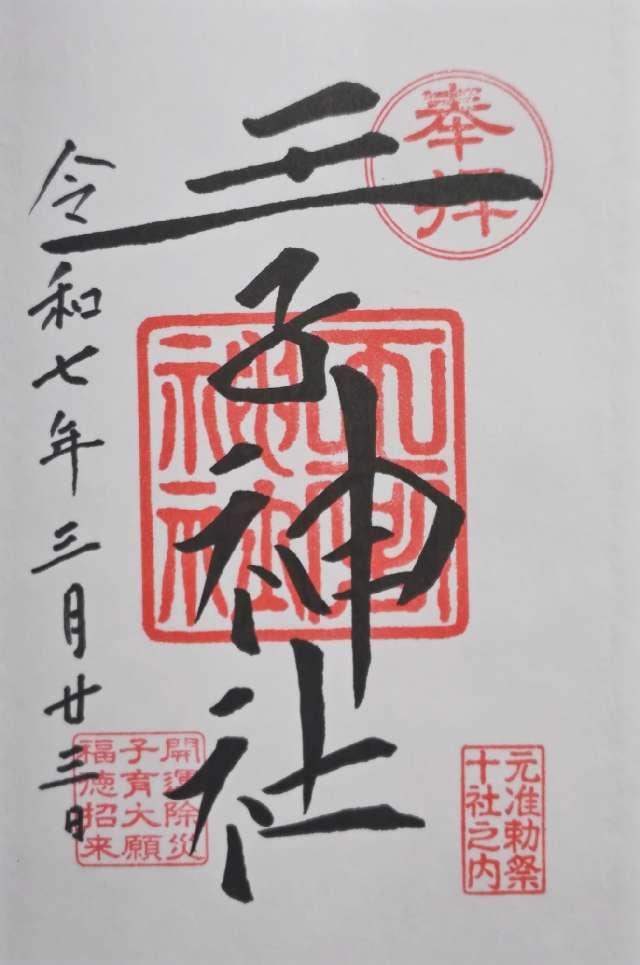 奉拝
王子神社
令和七年三月廿三日
元准勅祭
十社之内
開運除災
子育大願
福徳招来